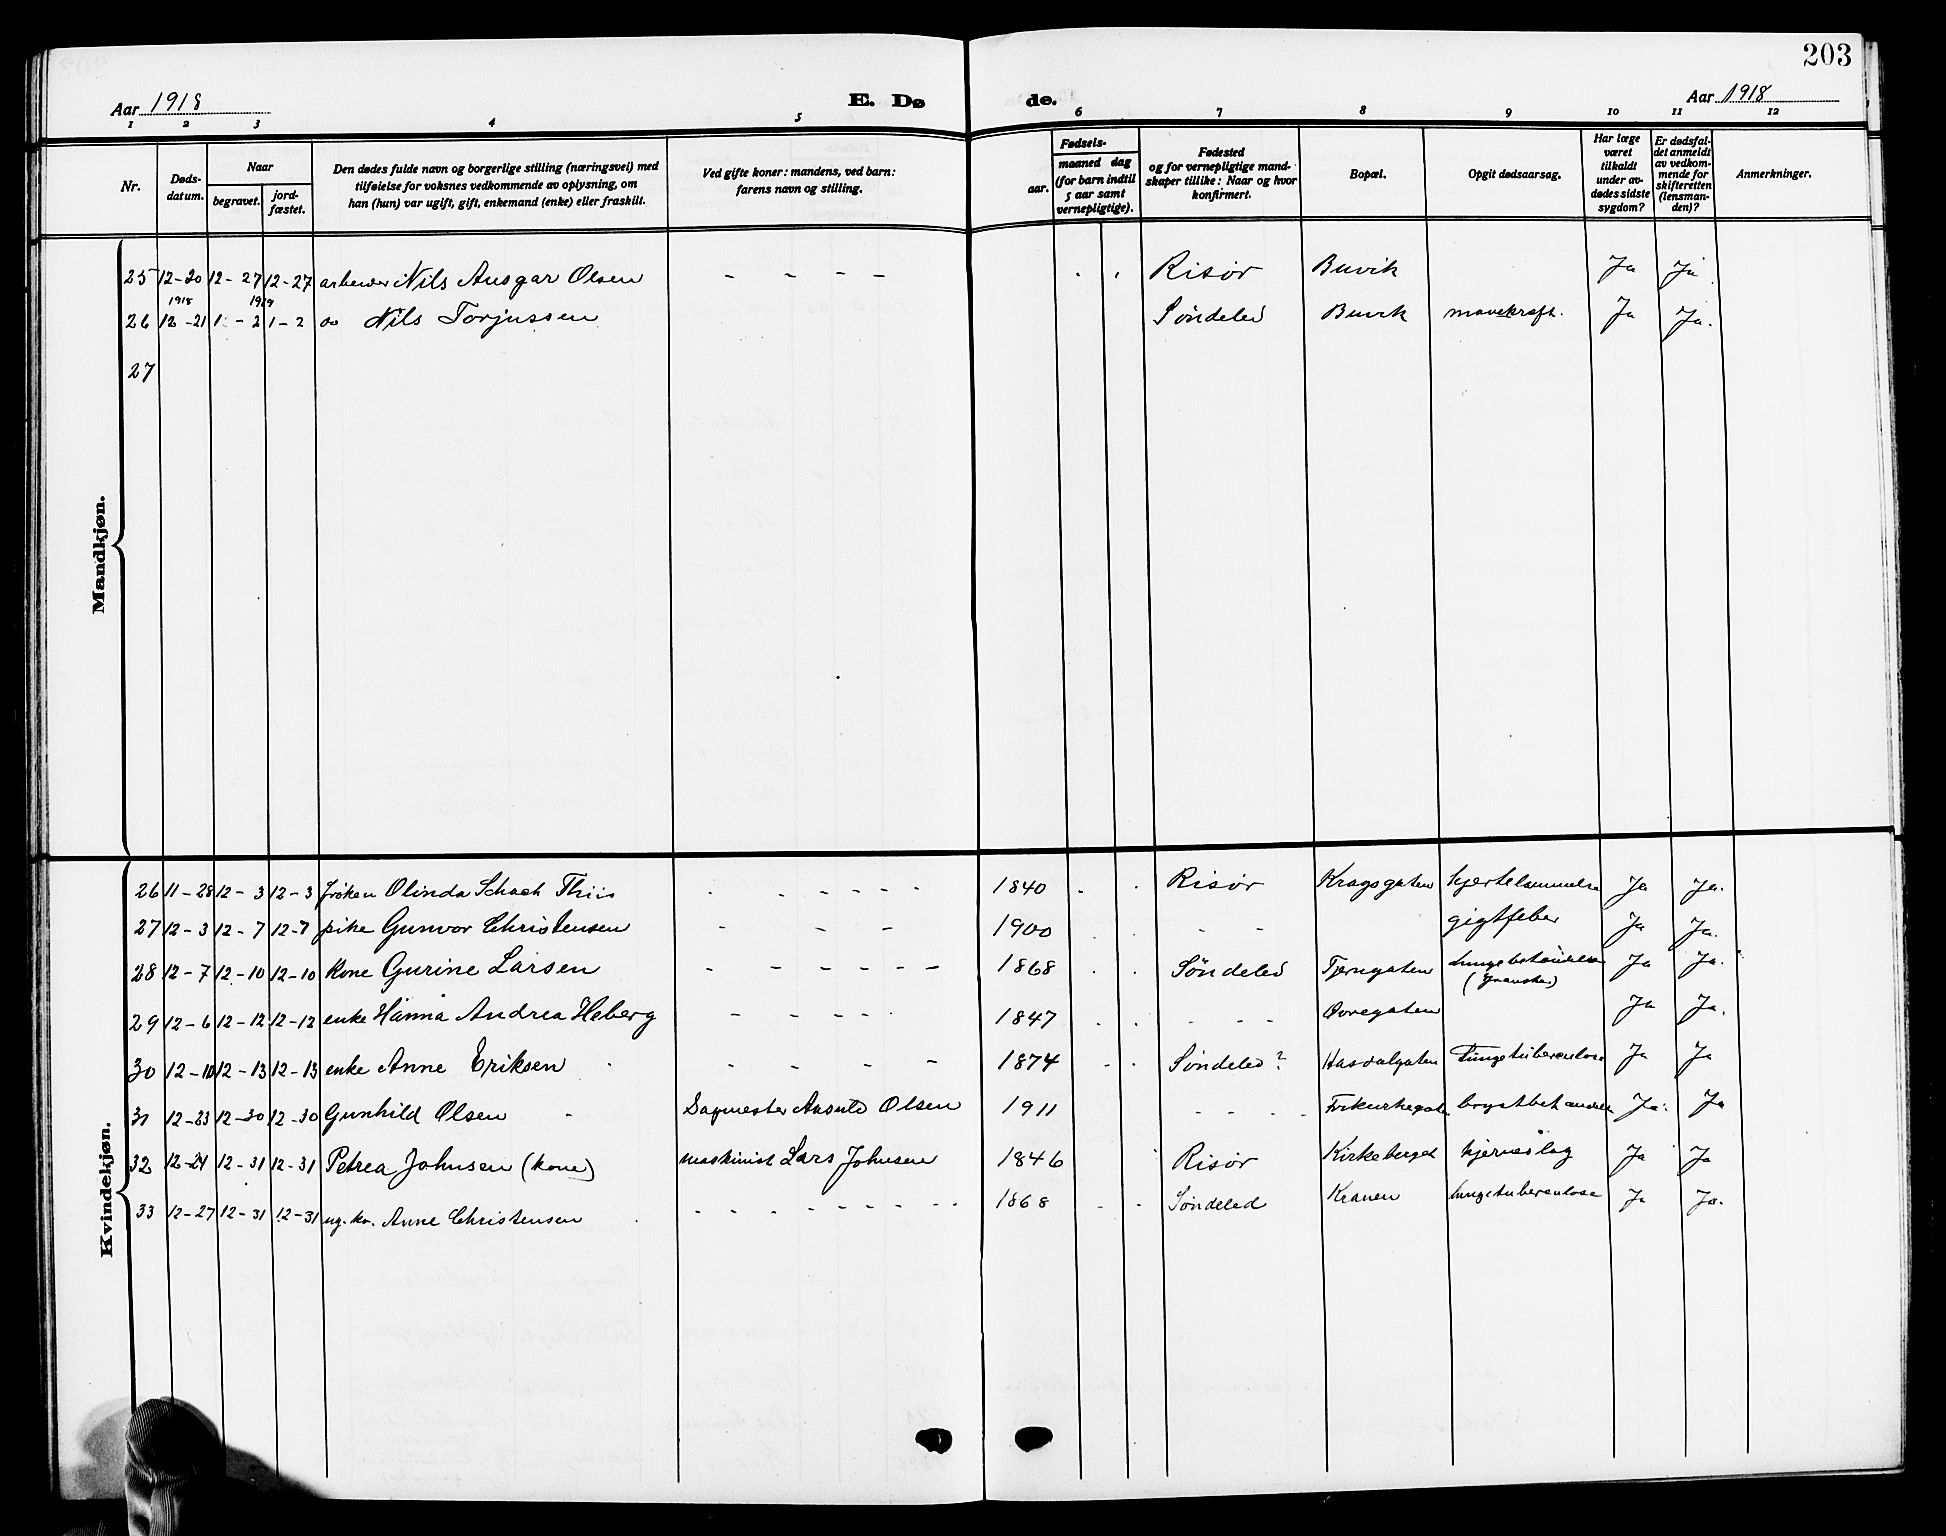 203
Aar 1918 E. Dø de. Aar 1918
1 2 3 4 5 6 7 8 9 10 11 12
Nr.
Døds-
datum.
Naar
begravet.
jord-
fæstet.
Den dødes fulde navn og borgerlige stilling (næringsvei) med
tilføielse for voksnes vedkommende av oplysning, om
han (hun) var ugift, gift, enkemand (enke) eller fraskilt.
Ved gifte koner: mandens, ved barn:
farens navn og stilling.
Fødsels-
aar.
maaned dag
(for barn indtil
5 aar samt
vernepligtige).
Fødested
og for vernepligtige mand-
skaper tillike: Naar og hvor
konfirmert.
Bopæl.
Opgit dødsaarsag.
Har læge
været
tilkaldt
under av-
dødes sidste
sygdom?
Er dødsfal-
det anmeldt
av vedkom-
mende for
skifteretten
(lensman-
den)?
Anmerkninger.
Mandkjøn.
25 12-20 12-27 12-27 arbeider Nils Ansgar Olsen - - - - Risør Buvik Ja Ja
1918 1919
26 12-21 1-2 1-2 do Nils Torjussen Søndeled Buvik mavekræft. Ja Ja.
27
Kvindekjøn.
26 11-28 12-3 12-3 frøken Olinda Schach Thiis - - - - - 1840 - - Risør Kragsgaten hjertelammelse Ja Ja.
27 12-3 12-7 12-7 pike Gunvor Christensen - - - 1900 - - gigtfeber Ja Ja.
28 12-7 12-10 12-10 kone Gurine Larsen - - - - - - 1868 Søndeled Tjerngaten Lungebetændelse Ja Ja.
(spanske)
29 12-6 12-12 12-12 enke Hanna Andrea Heberg - - - - 1847 - - - Ovregaten Ja Ja.
30 12-10 12-13 12-13 enke Anne Eriksen - - - - 1874 - - Søndeled? Hasdalgaten Lungetuberculose Ja Ja
31 12-23 12-30 12-30 Gunhild Olsen - Sagmester Ansult Olsen 1911 - - - - brystbetændelse Ja. Ja
32 12-24 12-31 12-31 Petrea Johnsen (kone) maskinist Lars Johnsen 1846 Risør Kirkeberget hjerneslag Ja Ja
33 12-27 12-31 12-31 ug. kv. Anne Christensen - - - - - - - - 1868 - - Søndeled Kranen lungetuberculose Ja Ja.